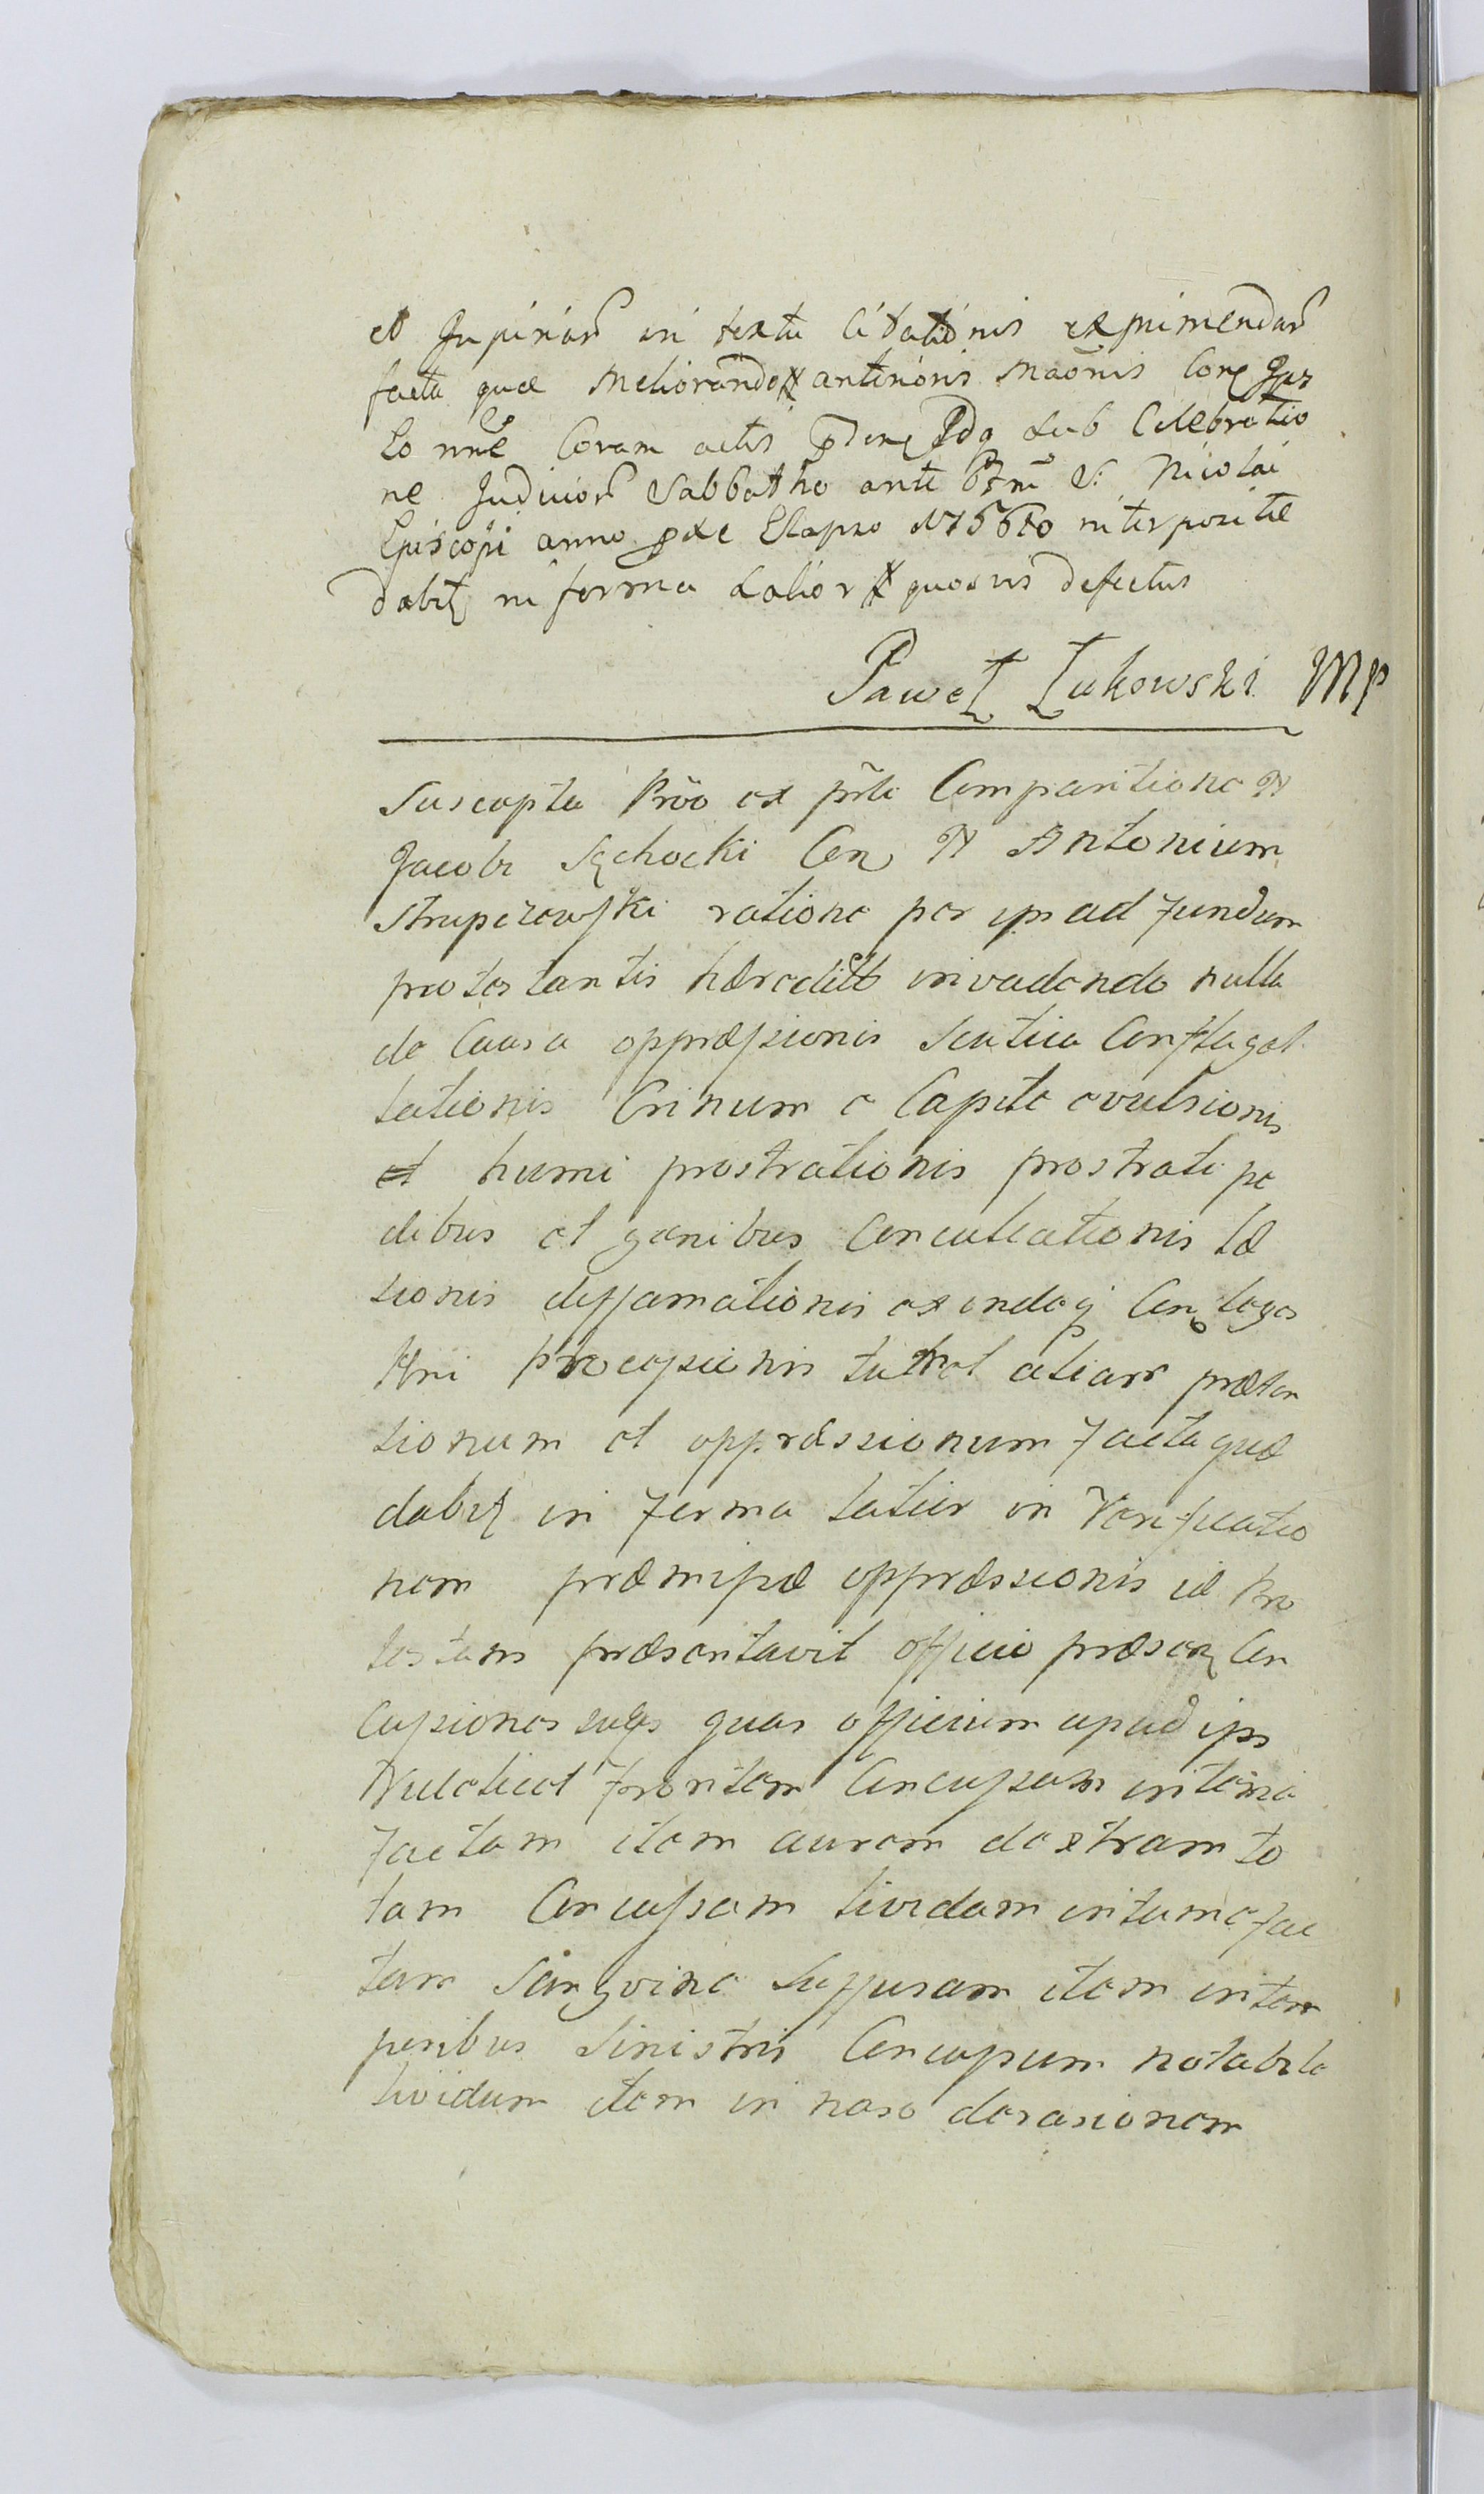 et Injuriar in textu Citationis exprimendar
facta quæ Meliorando anterioris Maõnis
Eo nñe Coram actis sub Celebratio
ne Judicior Sabbatho ante S: Nicolai
Episcopi anno Elapso interpositæ
dabit in forma Latior quosvis defectus
Paweł Łukowski Mp
Suscepta Prõo ex Comparitione N
Jacobi Sęchocki Con N Antonium
Strupczewski ratione per ips ad fundum
protestantis hæredit invadendo nulla
de Causa oppræssionis Scutica Conflagel
lationis Crinum e Capite evulsionis
et humi prostrationis prostrati pe
dibus et genibus Conculcationis læ
sionis deffamationis ex indeq Con leges
Hni tum et aliarr præten
sionum et oppræssionum facta quæ
dabit in forma latior in Verificatio
nem præmissæ oppræssionis id Pro
testans præsentavit officio præsen Con
cussiones suas quas officium apud ips
frontem Concussam
factam item aurem dextram to
tam Concussam lividam intumefac
tam Sangvine Suffusam item in tem
poribus Sinistris Concussum notabile
lividum item in naso derasionem